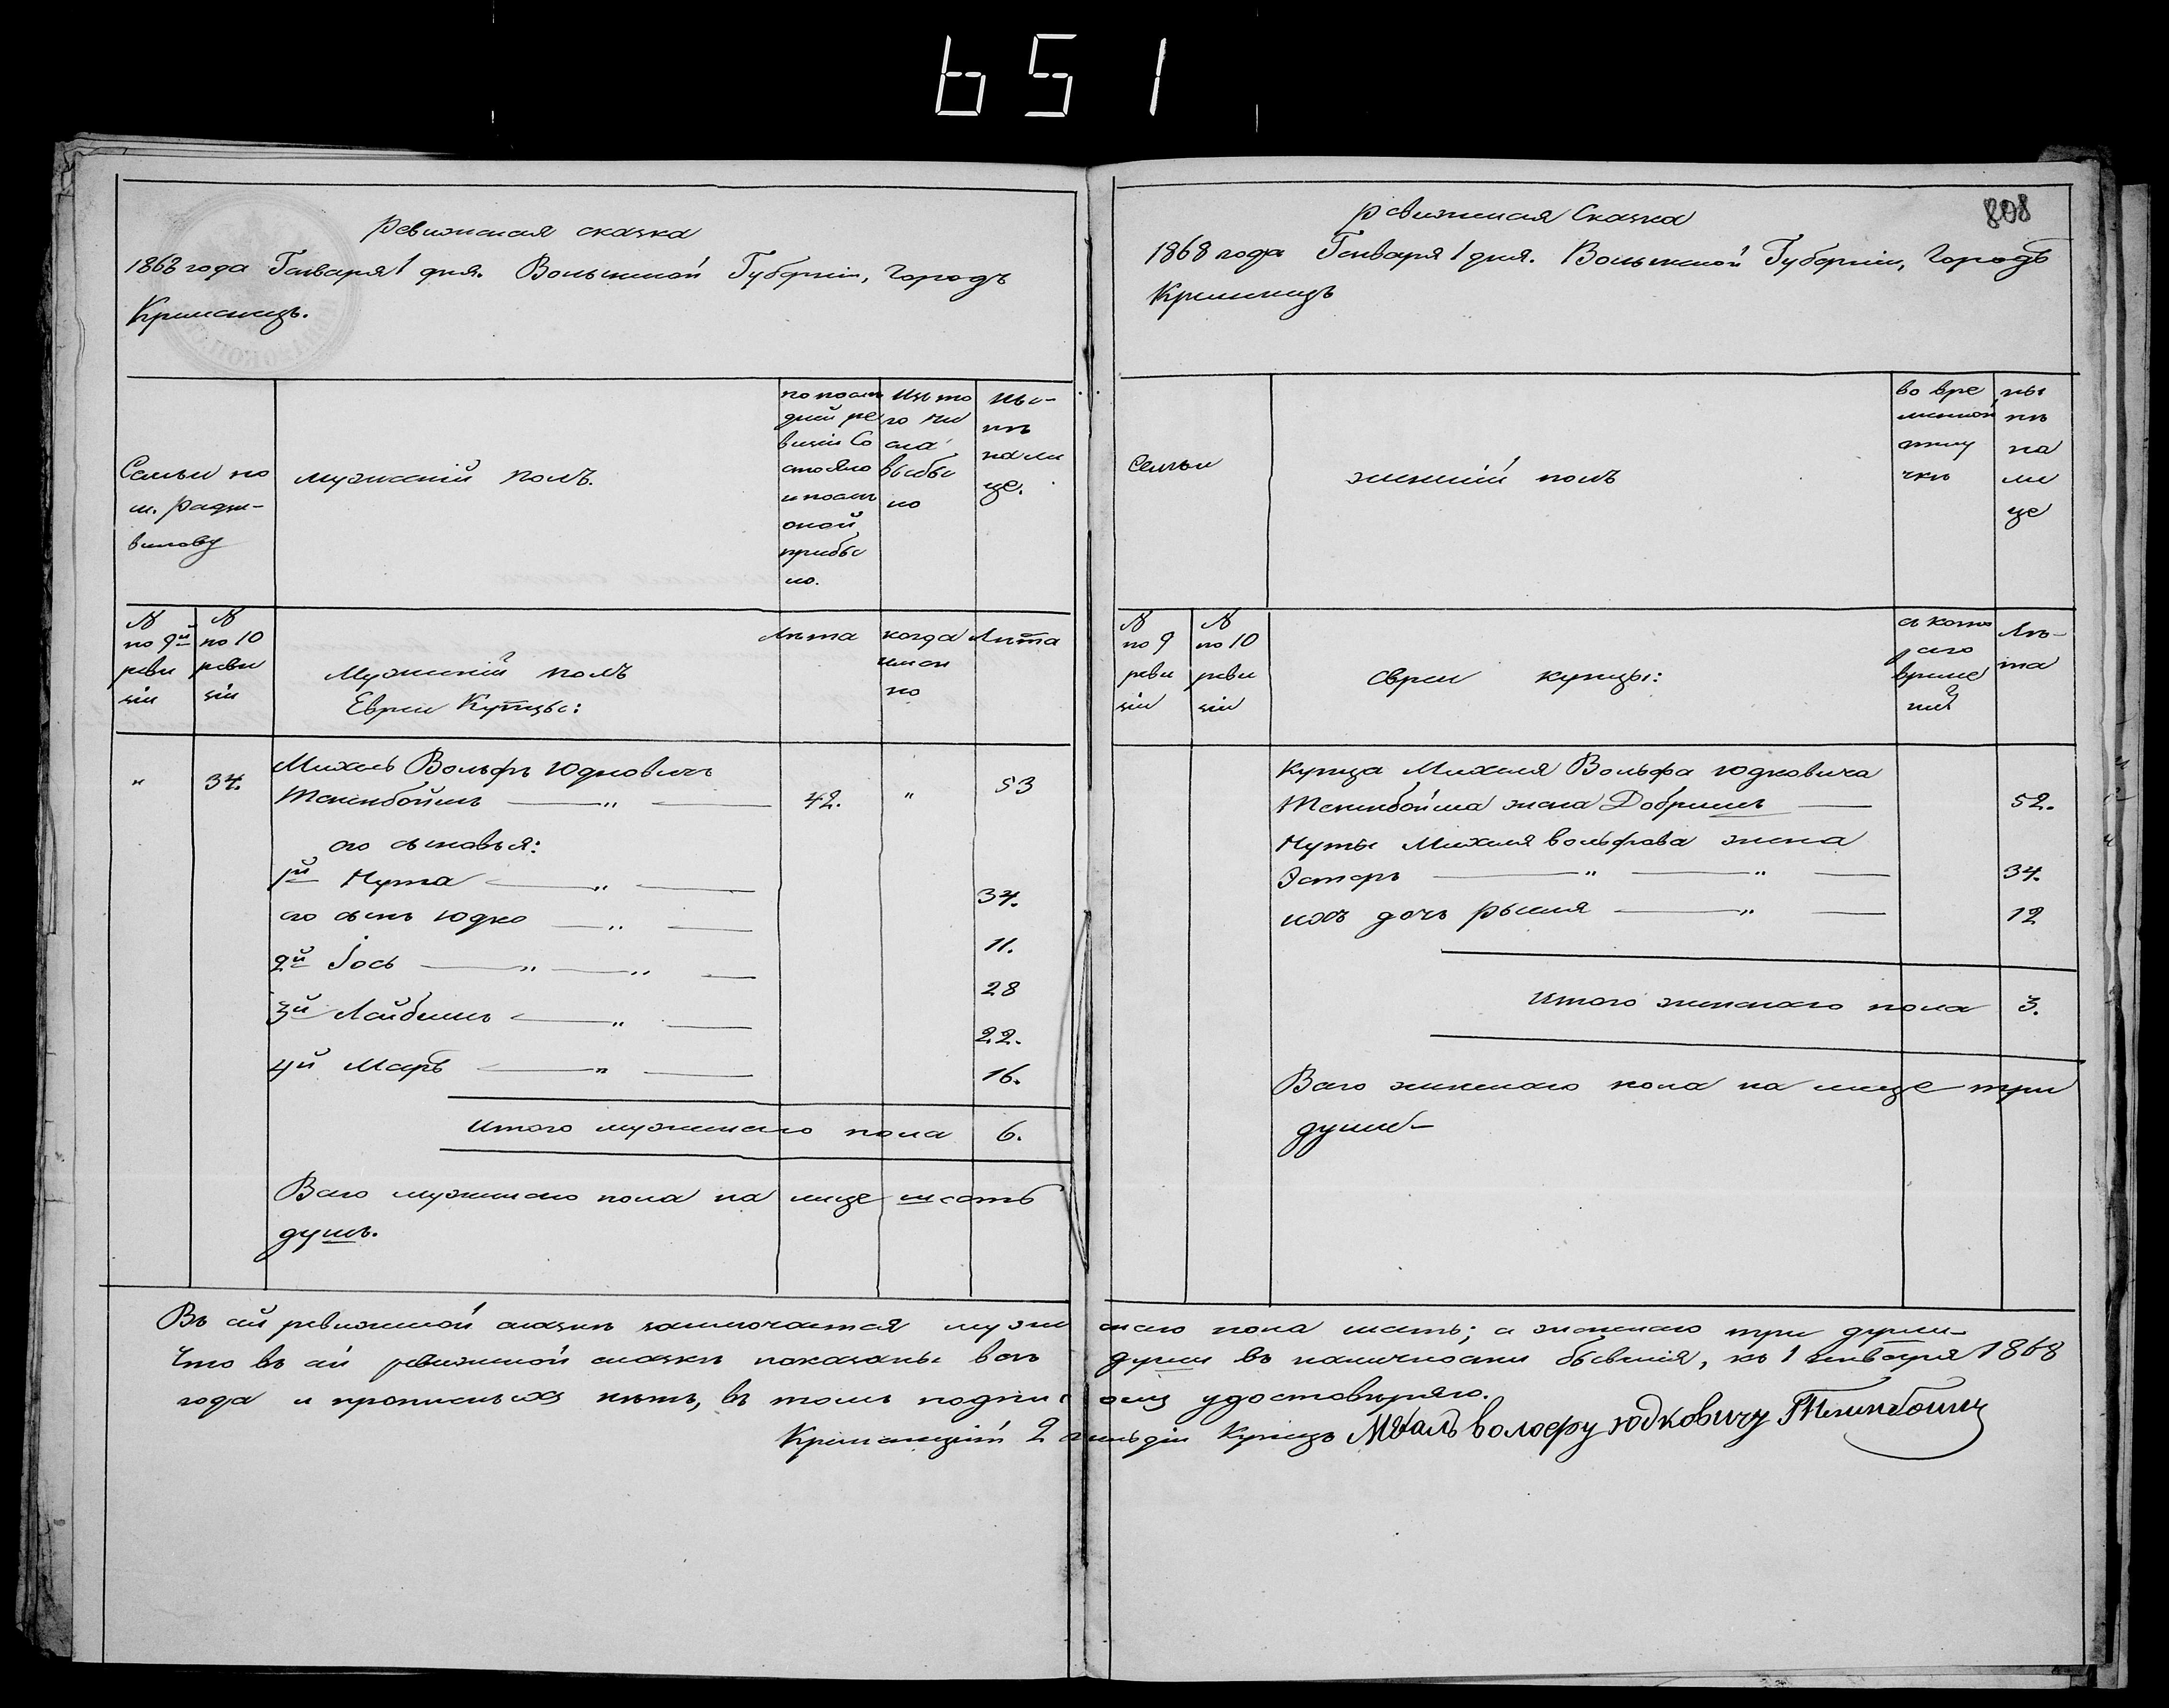 651
Ревизская сказка
1868 года Генваря 1 дня. Волынской Губерніи, Городъ
Кременецъ.
по послѣ
дней ре
визіи Со
стояло
и послѣ
оной
прибы
ло.
Изъ то
го чи
сла
выбы
ло
Ны-
нѣ
на ли
це.
Семьи по
м. Радзи-
вилову
Мужескій полъ.
№
по 9й
реви
зіи
№
по 10
реви
зіи
Мужескій полъ
Евреи Купцы:
Лѣта
когда
имен
но
Лѣта
" 34. Михель Вольфъ Юдковичъ
Тененбоймъ — " — 42. " 53
его сыновья:
1й Нута — " — 34.
его сынъ Юдко — " — 11.
2й Іось — " — " — 28
3й Лейбишъ — " — 22.
4й Маръ — " — 16.
Итого мужескаго пола 6.
Всего мужескаго пола на лице шесть
душъ.
808
Ревизская Сказка
1868 года Генваря 1 дня. Волынской Губерніи, Городъ
Кременецъ
Семьи
женскій полъ
во вре
менной
отлу
чкѣ
ны
нѣ
на
ли
це
№
по 9
реви
зіи
№
по 10
реви
зіи
Евреи купцы:
съ кото
раго
време
ни
Лѣ-
та
Купца Михеля Вольфа Юдковича
Тененбойма жена Добришъ — 52.
Нуты Михеля Вольфова жена
Эстеръ — " — " — 34.
ихъ дочь Рыеля — " — 12
Итого женскаго пола 3.
Всего женскаго пола на лице три
души
Въ сей ревизской сказкѣ заключается мужескаго пола шесть; а женскаго три души
Что въ сей ревизской сказкѣ показаны всѣ души въ наличности бывшія, къ 1 Генваря 1868
года и прописныхъ нѣтъ, въ томъ подпискою удостовѣряю.
Кременецкій 2 гильдіи Купецъ Михаль волфру юдковичу Тененбоим